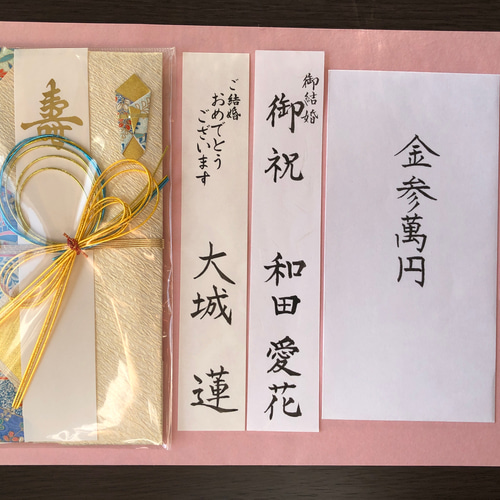 金参萬円
御結婚
御祝
和田愛花
ご結婚
おめでとう
ございます
大城蓮
寿